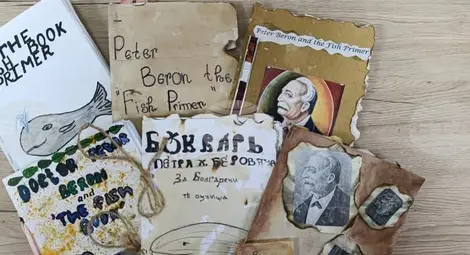 THE
H BOOK
PRIMER
Peter
Beron the
"Fish Primer"
Peter Beron and the Fish Primer
DOCTOR
BERON
and
THE FISH
BOOK
БꙊКВАРЬ
ПЕТРА Х. БЕРОВИЧА
За Болгарски
те